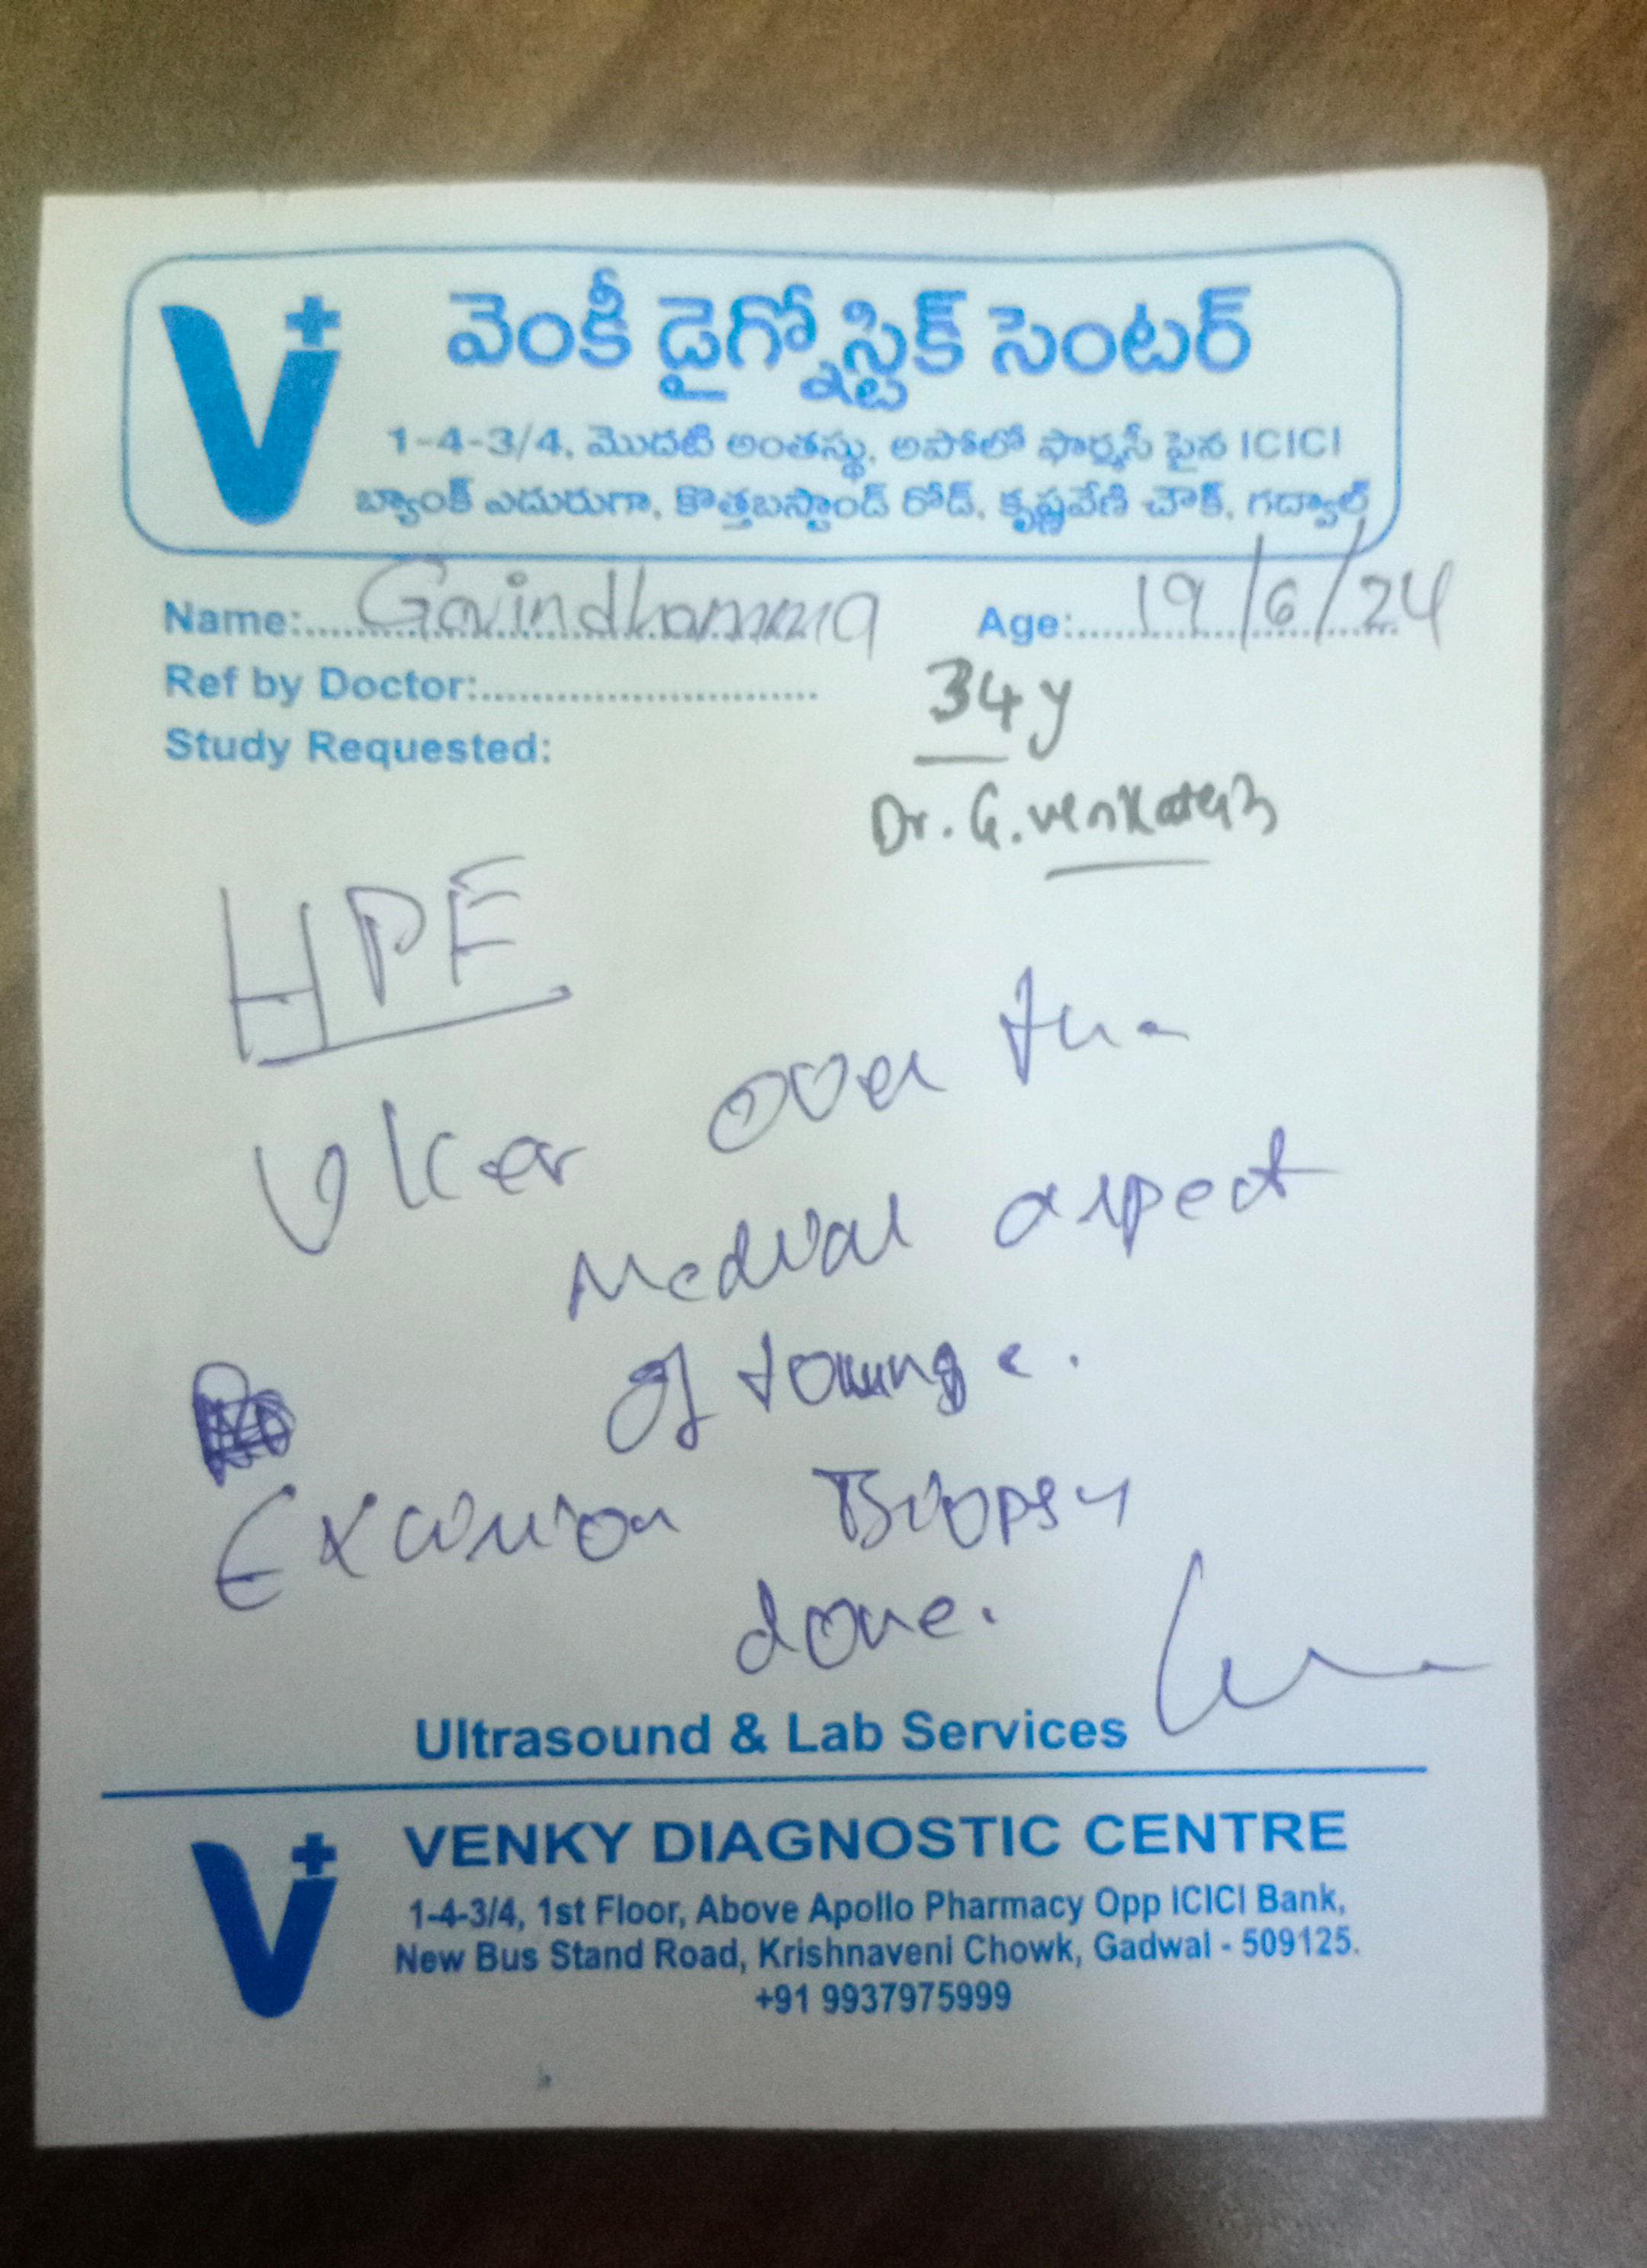 వెంకీ డైగ్నోస్టిక్ సెంటర్
1-4-3/4, మొదటి అంతస్థు, అపోలో ఫార్మసీ పైన ICICI
బ్యాంక్ ఎదురుగా, కొత్తబస్టాండ్ రోడ్, కృష్ణవేణి చౌక్, గద్వాల్
Name: Govindhamma Age: 19/6/24
Ref by Doctor: 34y
Study Requested:
Dr. G.
HPE
Ulcer over the
Medial aspect
of tounge.
Excision Biopsy
done.
Ultrasound & Lab Services
VENKY DIAGNOSTIC CENTRE
1-4-3/4, 1st Floor, Above Apollo Pharmacy Opp ICICI Bank,
New Bus Stand Road, Krishnaveni Chowk, Gadwal - 509125.
+91 9937975999